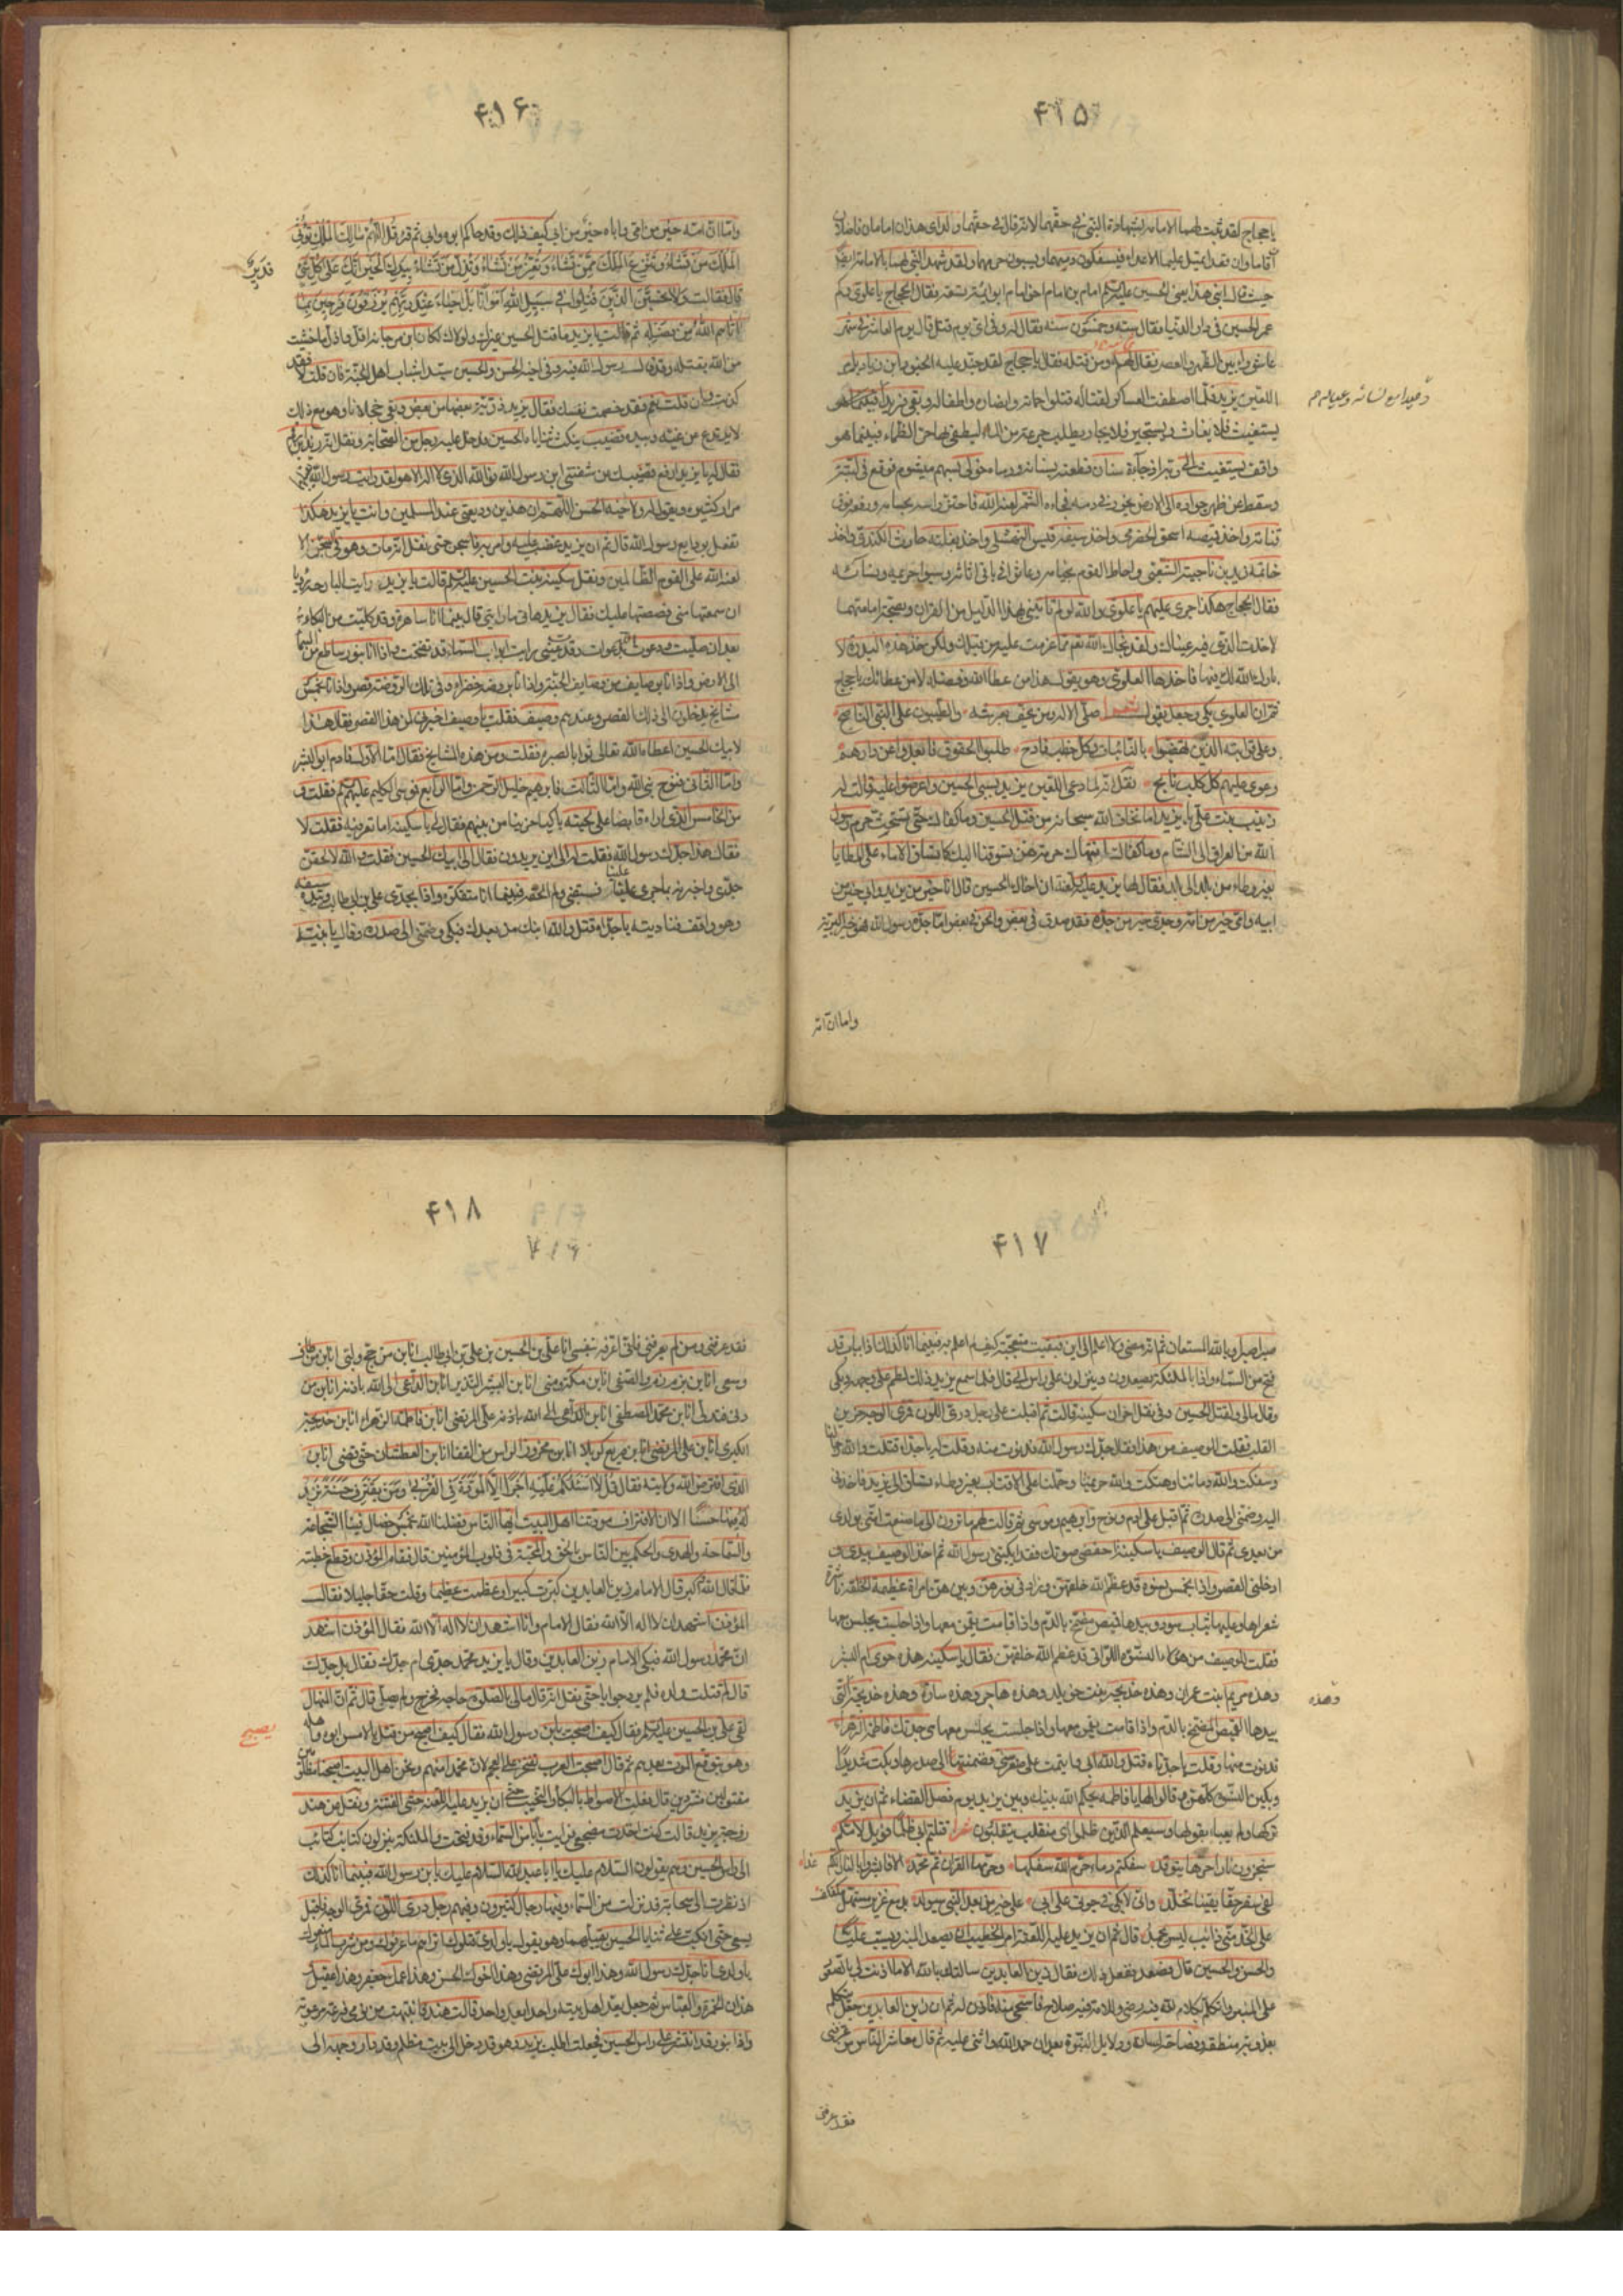 ۴۱۵
يا حجاج لقد ثبت لهما الامامة بشهادة النبي في حقهما لانه قال في حقهما ولداي هذان امامان قاما او
حيث قال ابني هذا يعني الحسين امام بن امام اخو امام ابو ائمة تسعة فقال الحجاج يا علوي وكم
عمر الحسين في دار الدنيا فقال ستة وخمسون سنة فقال له وفي اي يوم قتل قال يوم العاشر في شهر
عاشورا بين الظهر والعصر فقال ومن قتله فقال يا حجاج لقد جند عليه الجنود ابن زياد بامر
اللعين يزيد فلما اصطفت العساكر لقتاله قتلوا حماته وانصاره واطفاله وبقي فريدا فبينما هو
وحيدا مع نسائه وعياله
يستغيث فلا يغاث ويستجير فلا يجار ويطلب جرعة من الماء ليطفي بها حر الظماء فبينما هو
واقف يستغيث الى ربه اذ جاءه سنان فطعنه بسنانه ورماه خولى بسهم ميشوم فوقع في لبته
وسقط عن ظهر جواده الى الارض يخور في دمه فجاءه الشمر لعنه الله فاحتز راسه بحسامه ورفعه فوق
قناته واخذ قميصه اسحق الحضرمي واخذ سيفه قيس النهشلي واخذ بغلته حارث الكندي واخذ
خاتمه زيد بن ناجية الشعبي واحاط القوم بخيامه وعاثوا في باقي اثاثه وسبوا حريمه ونسائه
فقال الحجاج هكذا جرى عليهم يا علوي والله لو لم تاتيني بهذا الدليل من القران وبصحة امامتهما
لاخذت الذي فيه عيناك ولقد نجاك الله تعالى مما عزمت عليه من قتلك ولكن خذ هذه البدرة لا
بارك الله لك فيها فاخذها العلوي وهو يقول هذا من عطاء الله وفضله لا من عطائك يا حجاج
ثم ان العلوي بكى وجعل يقول شعرا صلى الاله ومن يحف بعرشه والطيبون على النبي الناصح
وعلى قرابته الذين نهضوا بالنائبات وكل خطب فادح طلبوا الحقوق فابعدوا عن دارهم
وعوى عليهم كل كلب نابح نقل انه لما دعى اللعين يزيد بسبي الحسين واعرضوا عليه قالت له
زينب بنت علي يا يزيد اما تخاف الله سبحانه من قتل الحسين وما كفاك حتى تستحث حرم رسول
الله من العراق الى الشام وما كفاك انتهاك حرمتهن حتى تسوقنا اليك كما تساق الاماء على المطايا
بغير وطاء من بلد الى بلد فقال لها يزيد عليه اللعنة ان اخاك الحسين قال انا خير من يزيد وابي خير من
ابيه وامي خير من امه وجدي خير من جده فقد صدق في بعض والحن في بعض اما جده رسول الله فهو خير البرية
واما ان امه
۴۱۶
واما ان امه خير من امي واباه خير من ابي كيف ذلك وقد حاكم ابوه ابي ثم قرء قل اللهم مالك الملك تؤتي
الملك من تشاء وتنزع الملك ممن تشاء وتعز من تشاء وتذل من تشاء بيدك الخير انك على كل شيء
قدير
قال فقالت ولا تحسبن الذين قتلوا في سبيل الله امواتا بل احياء عند ربهم يرزقون فرحين بما
اتاهم الله من فضله ثم قالت يا يزيد ما قتل الحسين غيرك ولولاك لكان ابن مرجانة اقل واذل اما خشيت
من الله بقتله وقد قال رسول الله فيه وفي اخيه الحسن والحسين سيدا شباب اهل الجنة فان قلت لا فقد
كذبت وان قلت نعم فقد خصمت نفسك فقال يزيد ذرية بعضها من بعض وبقي خجلانا وهو مع ذلك
لا يرتدع عن غيه وبيده قضيب ينكث ثنايا الحسين فدخل عليه رجل من الصحابة
فقال له يا يزيد ارفع قضيبك عن شفتي ابن رسول الله فوالله الذي لا اله الا هو لقد رايت رسول الله
مرارا كثيرة ويقول له ولاخيه الحسن اللهم ان هذين وديعتي عند المسلمين وانت يا يزيد هكذا
تفعل بودايع رسول الله قال ثم ان يزيد غضب عليه وامر به فسجن حتى نقل انه مات وهو في السجن الا
لعنة الله على القوم الظالمين ونقل سكينة بنت الحسين قالت يا يزيد رايت البارحة رؤيا
ان سمعتها مني قصصتها عليك فقال يزيد هاتي ما رايتي قالت بينما انا ساهرة وقد كليت من البكاء
بعد ان صليت ودعوت الله بدعوات رايت ابواب السماء قد تفتحت واذا انا بنور ساطع من السماء
الى الارض واذا انا بوصايف من وصايف الجنة واذا انا بروضة خضراء وفي تلك الروضة قصر واذا انا بخمس
مشايخ يدخلون الى ذلك القصر وعندهم وصيف فقلت يا وصيف اخبرني لمن هذا القصر فقال هذا
لابيك الحسين اعطاه الله تعالى ثوابا لصبره فقلت ومن هذه المشايخ فقال اما الاول فادم ابو البشر
واما الثاني فنوح نبي الله واما الثالث فابرهيم خليل الرحمن واما الرابع فموسى الكليم فقلت و
من الخامس الذي اراه قابضا على لحيته باكيا حزينا من بينهم فقال لي يا سكينة اما تعرفيه فقلت لا
فقال هذا جدك رسول الله فقلت له الى اين يريدون فقال الى ابيك الحسين فقلت والله لالحقن
جدي واخبرنه بما جرى علينا فسبقني ولم الحقه فبينما انا متفكرة واذا بجدي علي بن ابي طالب وبيده سيفه
وهو واقف فناديته يا جداه قتل والله ابنك من بعدك فبكى وضمني الى صدره وقال يا بنية
۴۱۷
صبرا صبرا وبالله المستعان ثم انه مضى ولا اعلم الى اين فبقيت متعجبة كيف لم اعلم به فبينما انا كذلك اذا بباب قد
فتح من السماء واذا بالملئكة يصعدون وينزلون على راس ابي قال فلما سمع يزيد ذلك لطم على وجهه وبكى
وقال مالي ولقتل الحسين وفي نقل اخر ان سكينة قالت ثم اقبل علي رجل دري اللون قمري الوجه حزين
القلب فقلت للوصيف من هذا فقال جدك رسول الله فدنوت منه وقلت له يا جداه قتلت والله رجالنا
وسفكت والله دماؤنا وهتكت والله حريمنا وحملنا على الاقتاب بغير وطاء نساق الى يزيد فاخذني
اليه وضمني الى صدره ثم اقبل على ادم ونوح وابرهيم وموسى ثم قال لهم ما ترون الى ما صنعت امتي بولدي
من بعدي ثم قال الوصيف يا سكينة اخفضي صوتك فقد ابكيتي رسول الله ثم اخذ الوصيف بيدي و
ادخلني القصر واذا بخمس نسوة قد عظم الله خلقتهن وزاد في نورهن وبينهن امراة عظيمة الخلقة ناشرة
شعرها وعليها ثياب سود وبيدها قميص مضمخ بالدم واذا قامت يقمن معها واذا جلست يجلسن معها
فقلت للوصيف من هؤلاء النسوة اللواتي قد عظم الله خلقتهن فقال يا سكينة هذه حوى ام البشر
وهذه مريم ابنت عمران وهذه خديجة بنت خويلد وهذه هاجر وهذه سارة
وهذه
بيدها القميص المضمخ بالدم واذا قامت يقمن معها واذا جلست يجلسن معها هي جدتك فاطمة الزهراء
فدنوت منها وقلت يا جدتاه قتل والله ابي وايتمت على صغر سني فضمتني الى صدرها وبكت شديدا
وبكين النسوة كلهن وقالوا لها يا فاطمة يحكم الله بينك وبين يزيد يوم فصل القضاء ثم ان يزيد
تركها ولم يعبأ بقولها وسيعلم الذين ظلموا اي منقلب ينقلبون
ستجزون نارا حرها يتوقد سفكتم دماء حرم الله سفكها وحرمها القران ثم محمد الا فابشروا بالنار انكم غدا
لفي سقر حقا يقينا تخلد واني لابكي في حيوتي على اخي على خير من بعد النبي سيولد بدمع غزير مستهل
على الخد مني ذائب ليس يجمد قال ثم ان يزيد عليه اللعنة امر الخطيب ان يصعد المنبر ويسب عليا
والحسن والحسين قال فصعد وفعل ذلك فقال زين العابدين سالتك بالله الا ما اذنت لي بالصعود
على المنبر واتكلم بكلام لله فيه رضى وللامة فيه صلاح فاستحى منه فاذن له ثم ان زين العابدين جعل يتكلم
بعذوبة منطقه وفصاحة لسانه ودلايل النبوة بعد ان حمد الله واثنى عليه ثم قال معاشر الناس من عرفني
فقد عرفني
۴۱۸
فقد عرفني ومن لم يعرفني فانا اعرفه بنفسي انا علي بن الحسين بن علي بن ابي طالب انا ابن من حج ولبى انا ابن من طاف
وسعى انا ابن زمزم والصفى انا ابن مكة ومنى انا ابن البشير النذير انا ابن الداعي الى الله باذنه انا ابن من
دنى فتدلى انا ابن محمد المصطفى انا ابن علي المرتضى انا ابن فاطمة الزهراء انا ابن خديجة
الكبرى انا ابن صريع كربلا انا ابن محزوز الراس من القفا انا ابن العطشان حتى قضى انا ابن
الذي افترض الله ولايته فقال قل لا اسئلكم عليه اجرا الا المودة في القربى ومن يقترف حسنة نزد
له فيها حسنا الا ان الاقتراف مودتنا اهل البيت ايها الناس فضلنا الله بخمس خصال فينا الشجاعة
والسماحة والهدى والحكم بين الناس بالحق والمحبة في قلوب المؤمنين قال فقام المؤذن وقطع خطبته
فلما قال الله اكبر قال الامام زين العابدين كبرت كبيرا وعظمت عظيما وقلت حقا جليلا فقال
المؤذن اشهد ان لا اله الا الله فقال الامام وانا اشهد ان لا اله الا الله فقال المؤذن اشهد
ان محمدا رسول الله فبكى الامام زين العابدين وقال يا يزيد محمد جدي ام جدك فقال بل جدك
قال لم قتلت ولده فلم يرد جوابا حتى نقل انه قال مالي بالصلوة حاجة فخرج ولم يصل قال ثم ان المنهال
لقى علي بن الحسين فقال كيف اصبحت يابن رسول الله فقال كيف اصبح من قتل بالامس ابوه واهله
يصبح
وهو يتوقع الموت بعدهم ثم قال اصبحت العرب تفتخر على العجم لان محمدا منهم ونحن اهل البيت اصبحنا مظلومين
مقتولين مشردين قال فعلت الاصوات بالبكاء والنحيب حتى ان يزيد عليه اللعنة خشى الفتنة ونقل عن هند
زوجة يزيد قالت كنت اخذت مضجعي فرايت بابا من السماء وقد فتحت والملئكة ينزلون كتائب كتائب
الى راس الحسين وهم يقولون السلام عليك يا ابا عبد الله السلام عليك يابن رسول الله فبينما انا كذلك
اذ نظرت الى سحابة قد نزلت من السماء وفيها رجال كثيرون وفيهم رجل دري اللون قمري الوجه فاقبل
يسعى حتى انكب على ثنايا الحسين يقبلهما وهو يقول يا ولدي قتلوك اتراهم ما عرفوك ومن شرب الماء منعوك
يا ولدي انا جدك رسول الله وهذا ابوك علي المرتضى وهذا اخوك الحسن وهذا عمك جعفر وهذا عقيل و
هذان الحمزة والعباس ثم جعل يعد اهل بيته واحدا بعد واحد قالت هند فانتبهت من نومي فزعة مرعوبة
واذا بنور قد انتشر على راس الحسين فجعلت اطلب يزيد وهو قد دخل الى بيت مظلم وقد دار وجهه الى